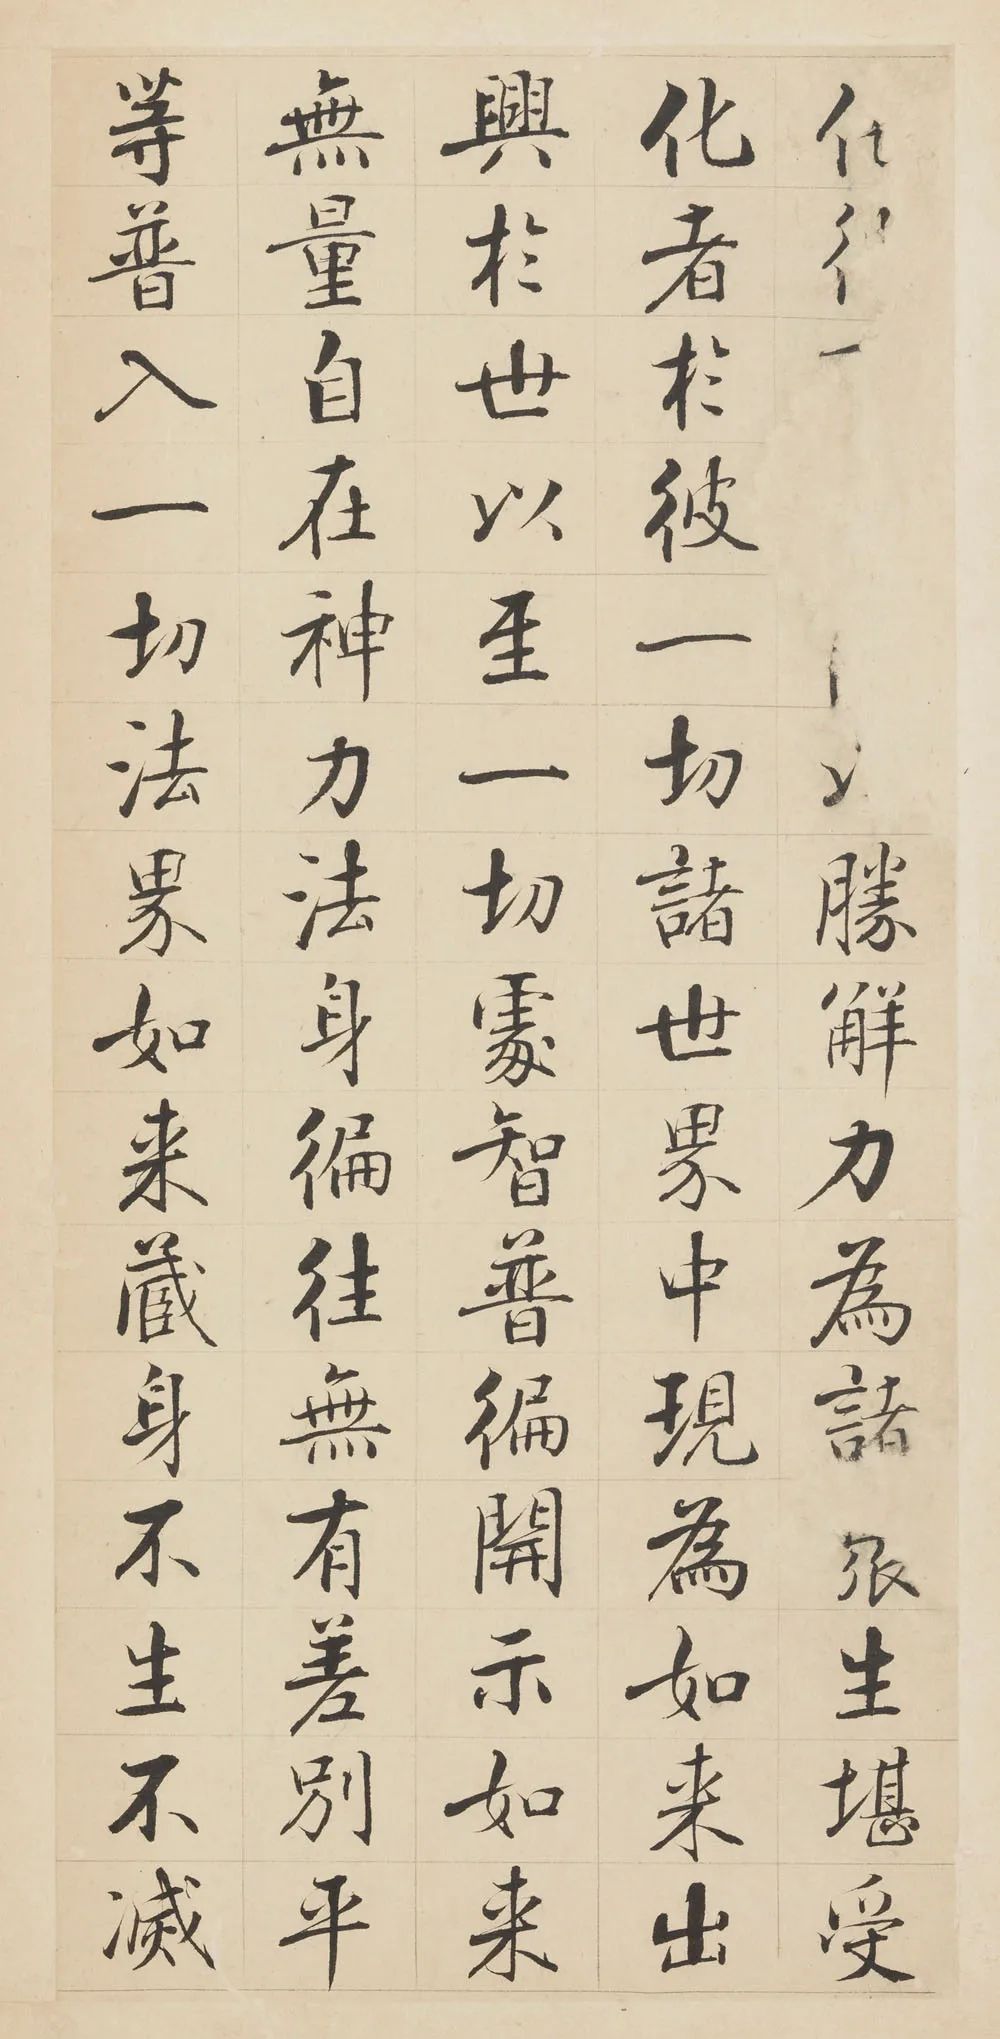 一 勝解力為諸 生堪受
化者於彼一切諸世界中現為如来出
興於世以至一切處智普徧開示如来
無量自在神力法身徧往無有差別平
等普入一切法界如来蔵身不生不滅